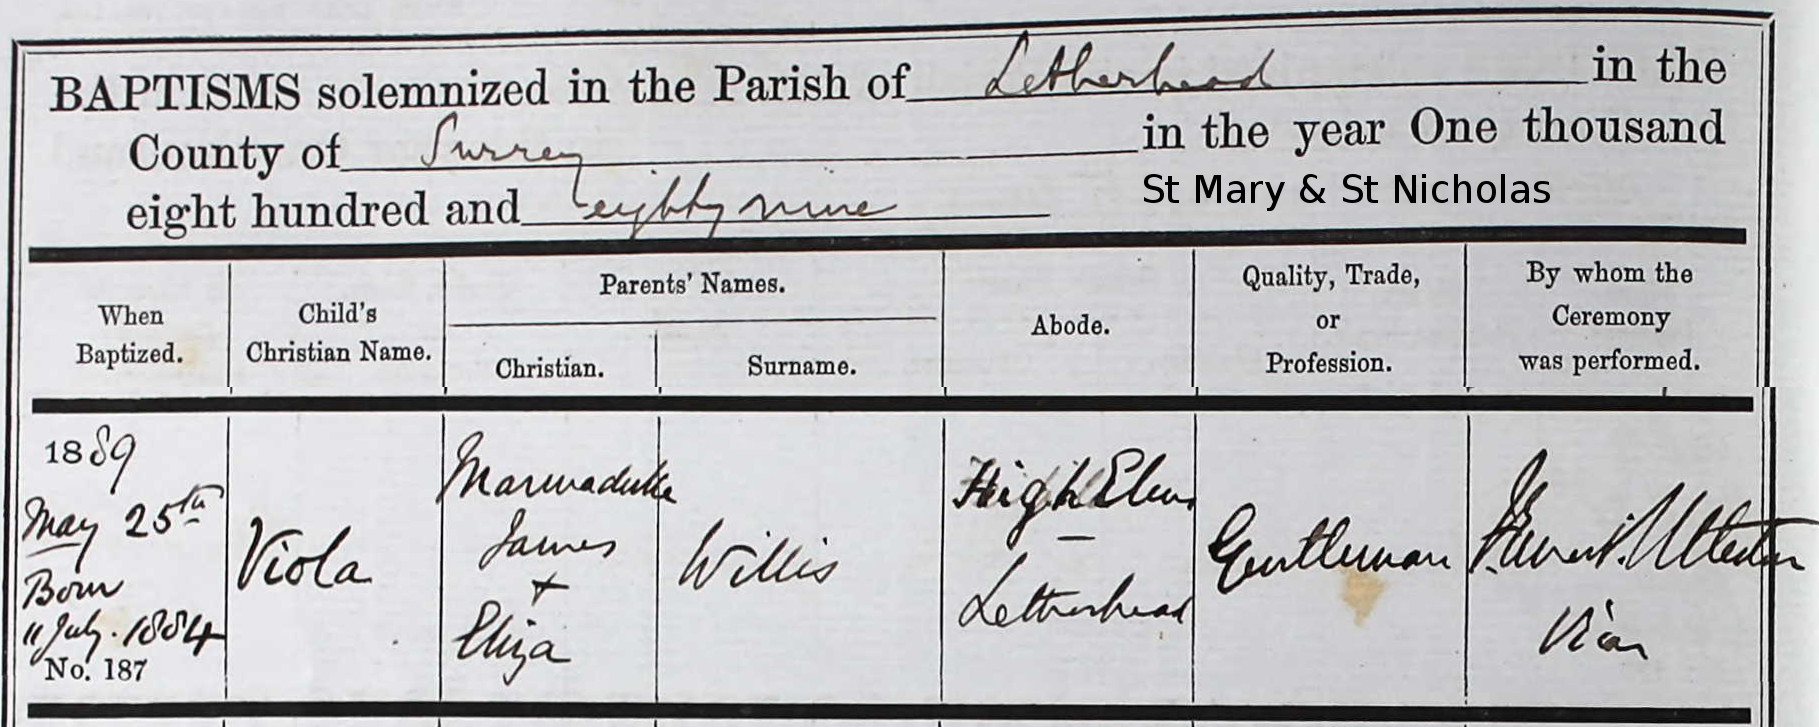 BAPTISMS solemnized in the Parish of Letherhead in the
County of Surrey in the year One thousand
eight hundred and eighty nine
St Mary & St Nicholas
When
Baptized.
Child's
Christian Name.
Parents' Names.
Christian.
Surname.
Abode.
Quality, Trade,
or
Profession.
By whom the
Ceremony
was performed.
1889
May 25th
Born
11 July. 1884
No. 187
Viola
Marmaduke
James
+
Eliza
Willis
High Elms
Letherhead
Gentleman
Vicar